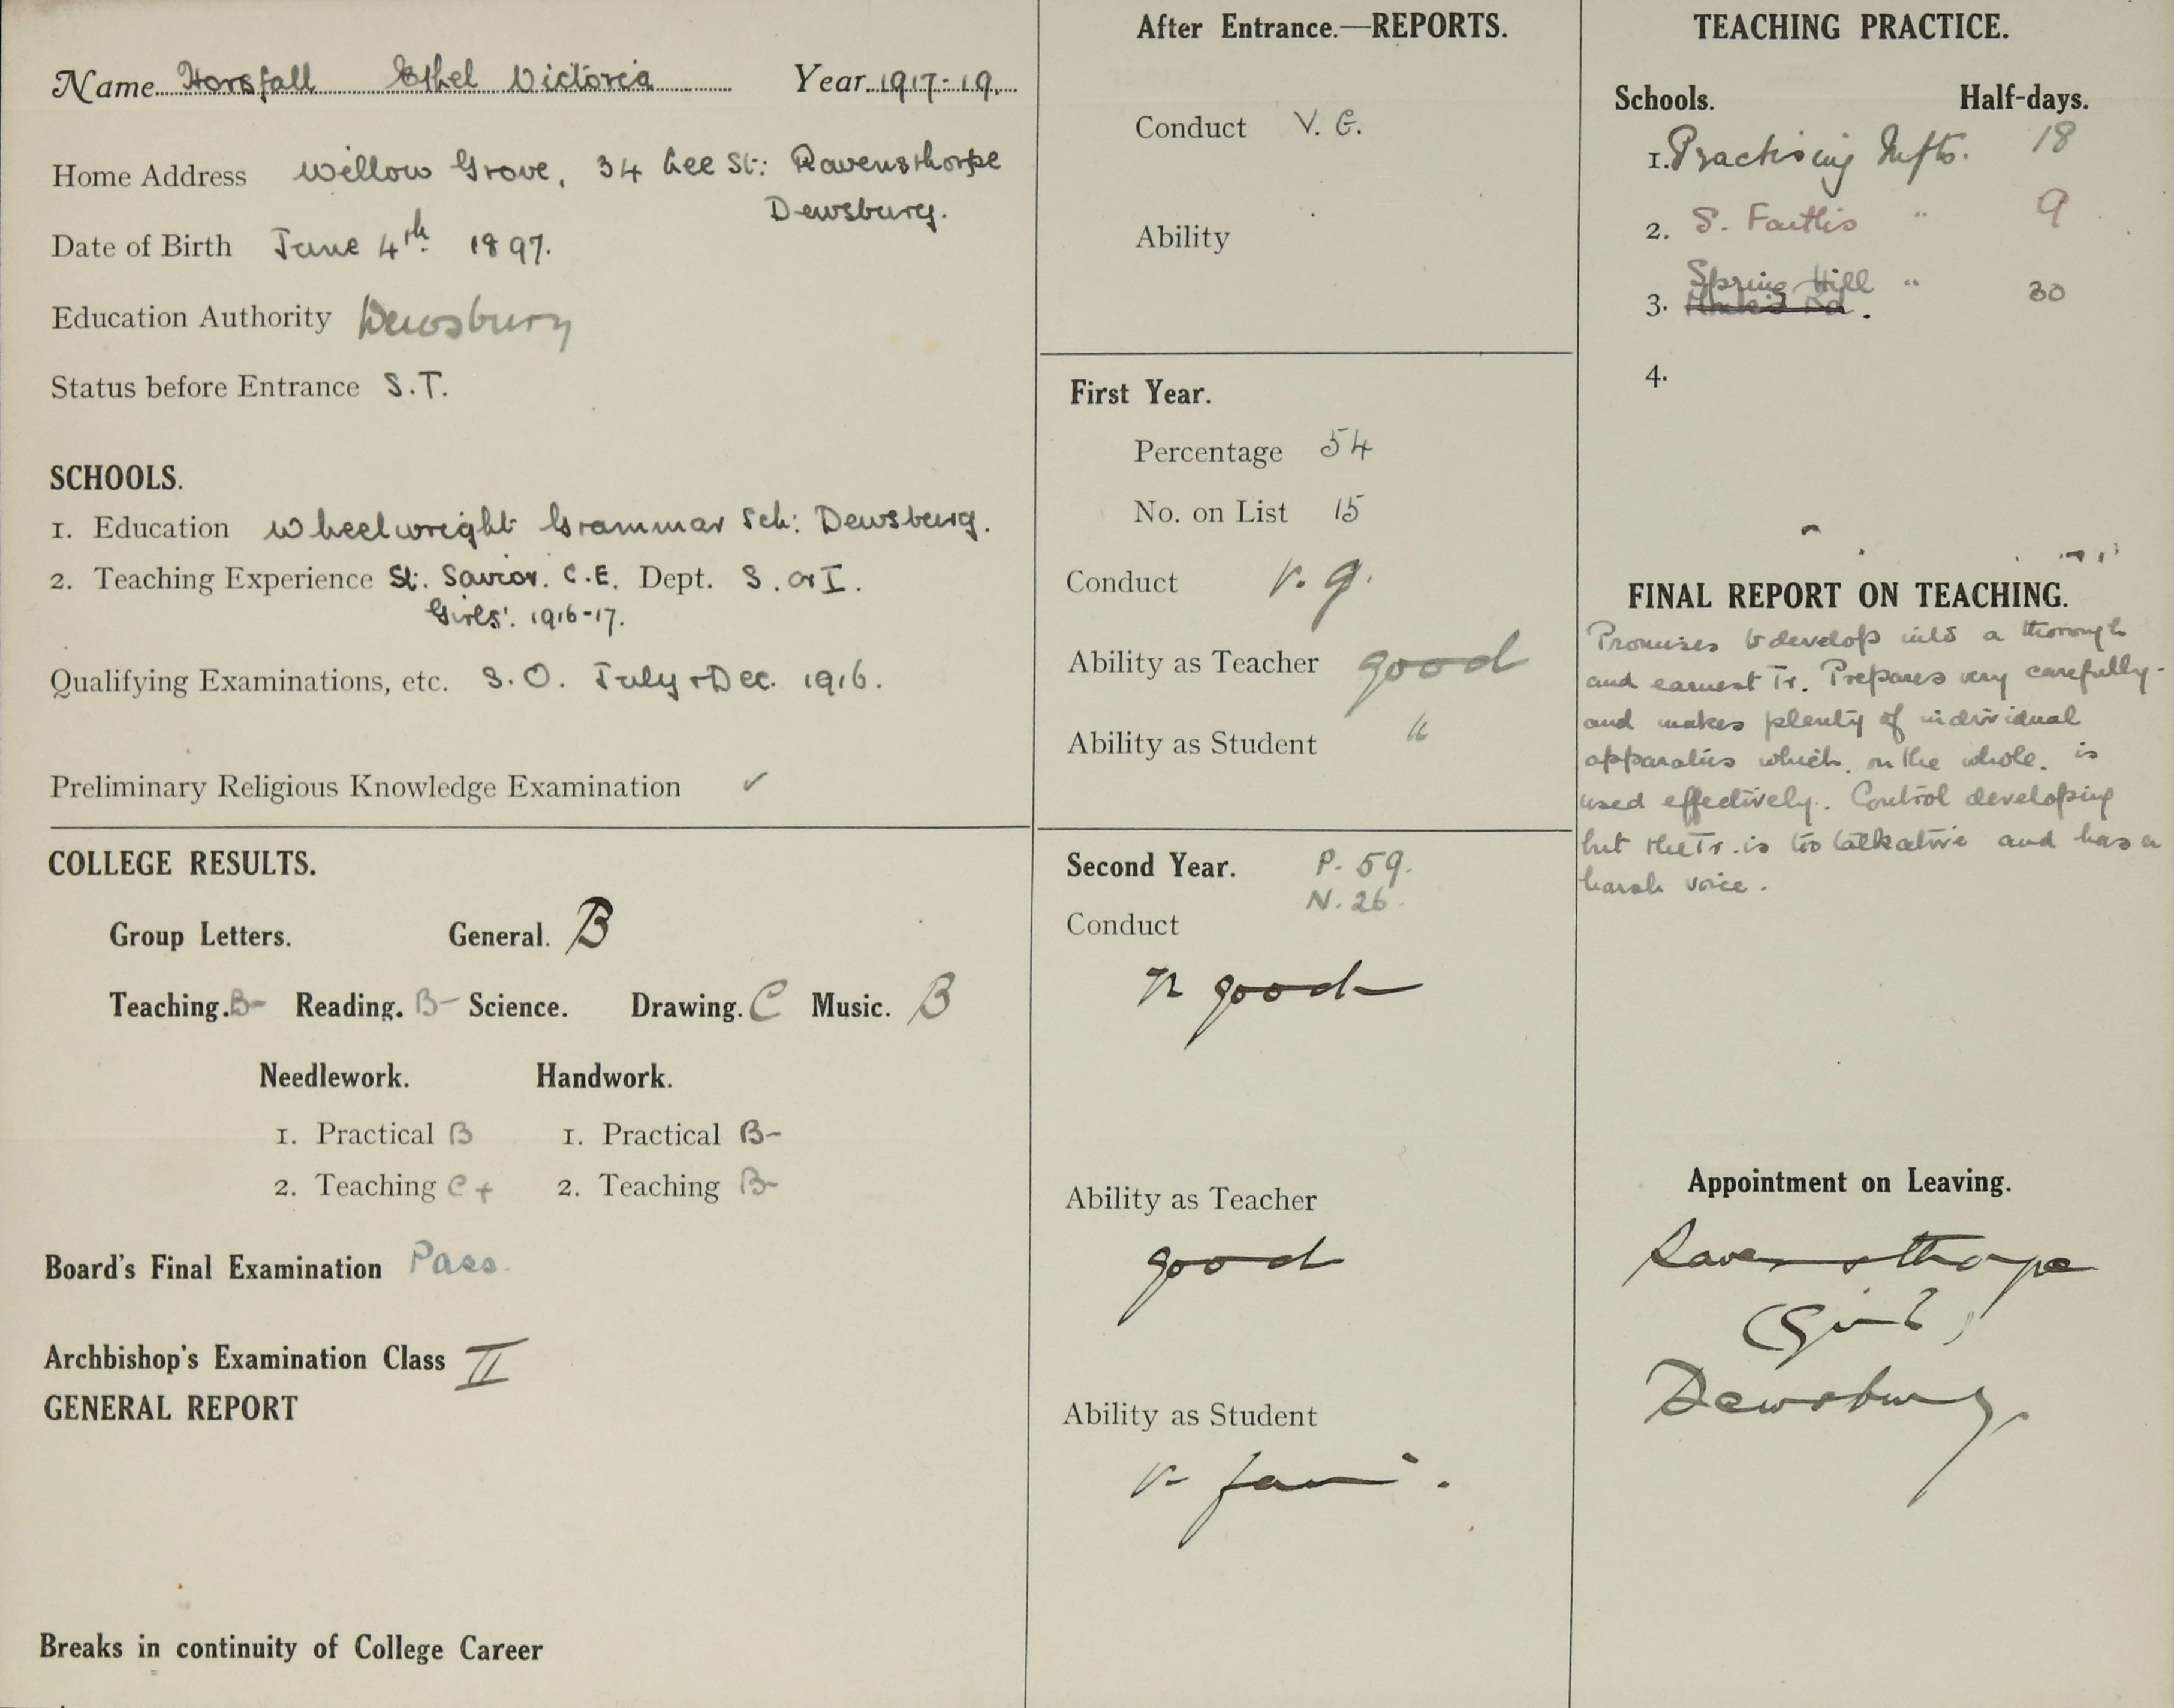 Name Horsfall Ethel Victoria Year 1917-19.
Home Address Willow Grove, 34 Lee St: Ravensthorpe
Dewsbury.
Date of Birth June 4th 1897.
Education Authority Dewsbury
Status before Entrance S.T.
SCHOOLS.
1. Education Wheelwright Grammar Sch: Dewsbury.
2. Teaching Experience St. Savior. C.E. Dept. S. or I.
Girls'. 1916-17.
Qualifying Examinations, etc. S.O. July + Dec. 1916.
Preliminary Religious Knowledge Examination ✓
COLLEGE RESULTS.
Group Letters. General. B
Teaching. B- Reading. B- Science. Drawing. C Music. B
Needlework. Handwork.
1. Practical B 1. Practical B-
2. Teaching C+ 2. Teaching B-
Board's Final Examination Pass.
Archbishop's Examination Class II
GENERAL REPORT
Breaks in continuity of College Career
After Entrance.—REPORTS.
Conduct V. G.
Ability
First Year.
Percentage 54
No. on List 15
Conduct v. g.
Ability as Teacher good
Ability as Student "
Second Year. P. 59.
N. 26.
Conduct
good
Ability as Teacher
good
Ability as Student
v. fair.
TEACHING PRACTICE.
Schools. Half-days.
1. Practising Infts. 18
2. S. Faith's " 9
Spring Hill " 30
3.
4.
FINAL REPORT ON TEACHING.
Promises to develop into a thorough
and earnest Tr. Prepares very carefully
and makes plenty of individual
apparatus which, on the whole, is
used effectively. Control developing
but the Tr. is too talkative and has a
harsh voice.
Appointment on Leaving.
Ravensthorpe
(Girls)
Dewsbury